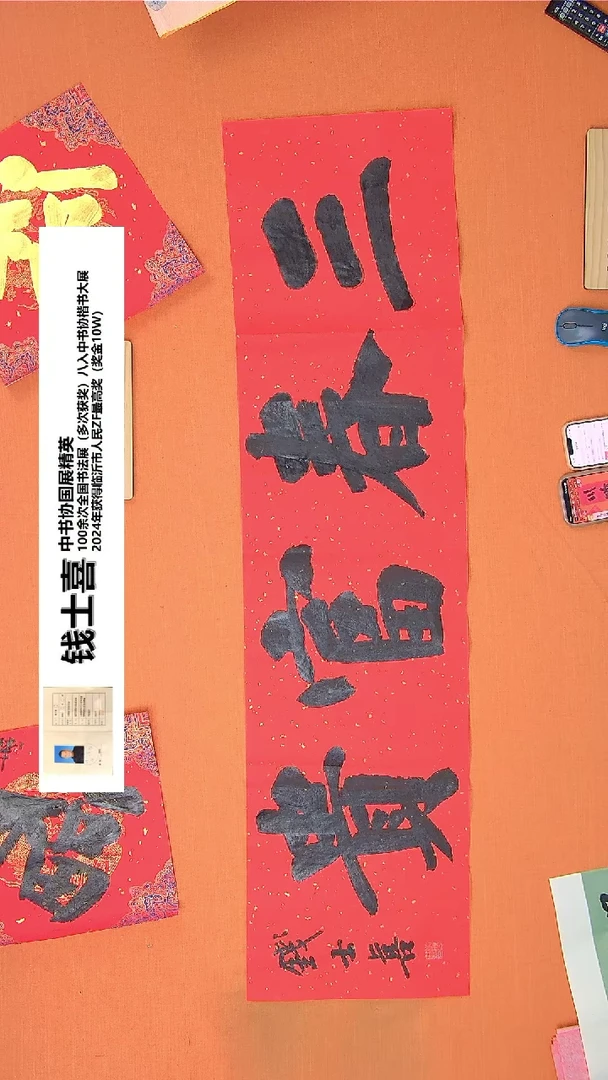 三春富貴
錢士喜
钱士喜
中书协国展精英
100余次全国书法展（多次获奖）八入中书协楷书大展
2024年获得临沂市人民ZF最高奖（奖金10W）